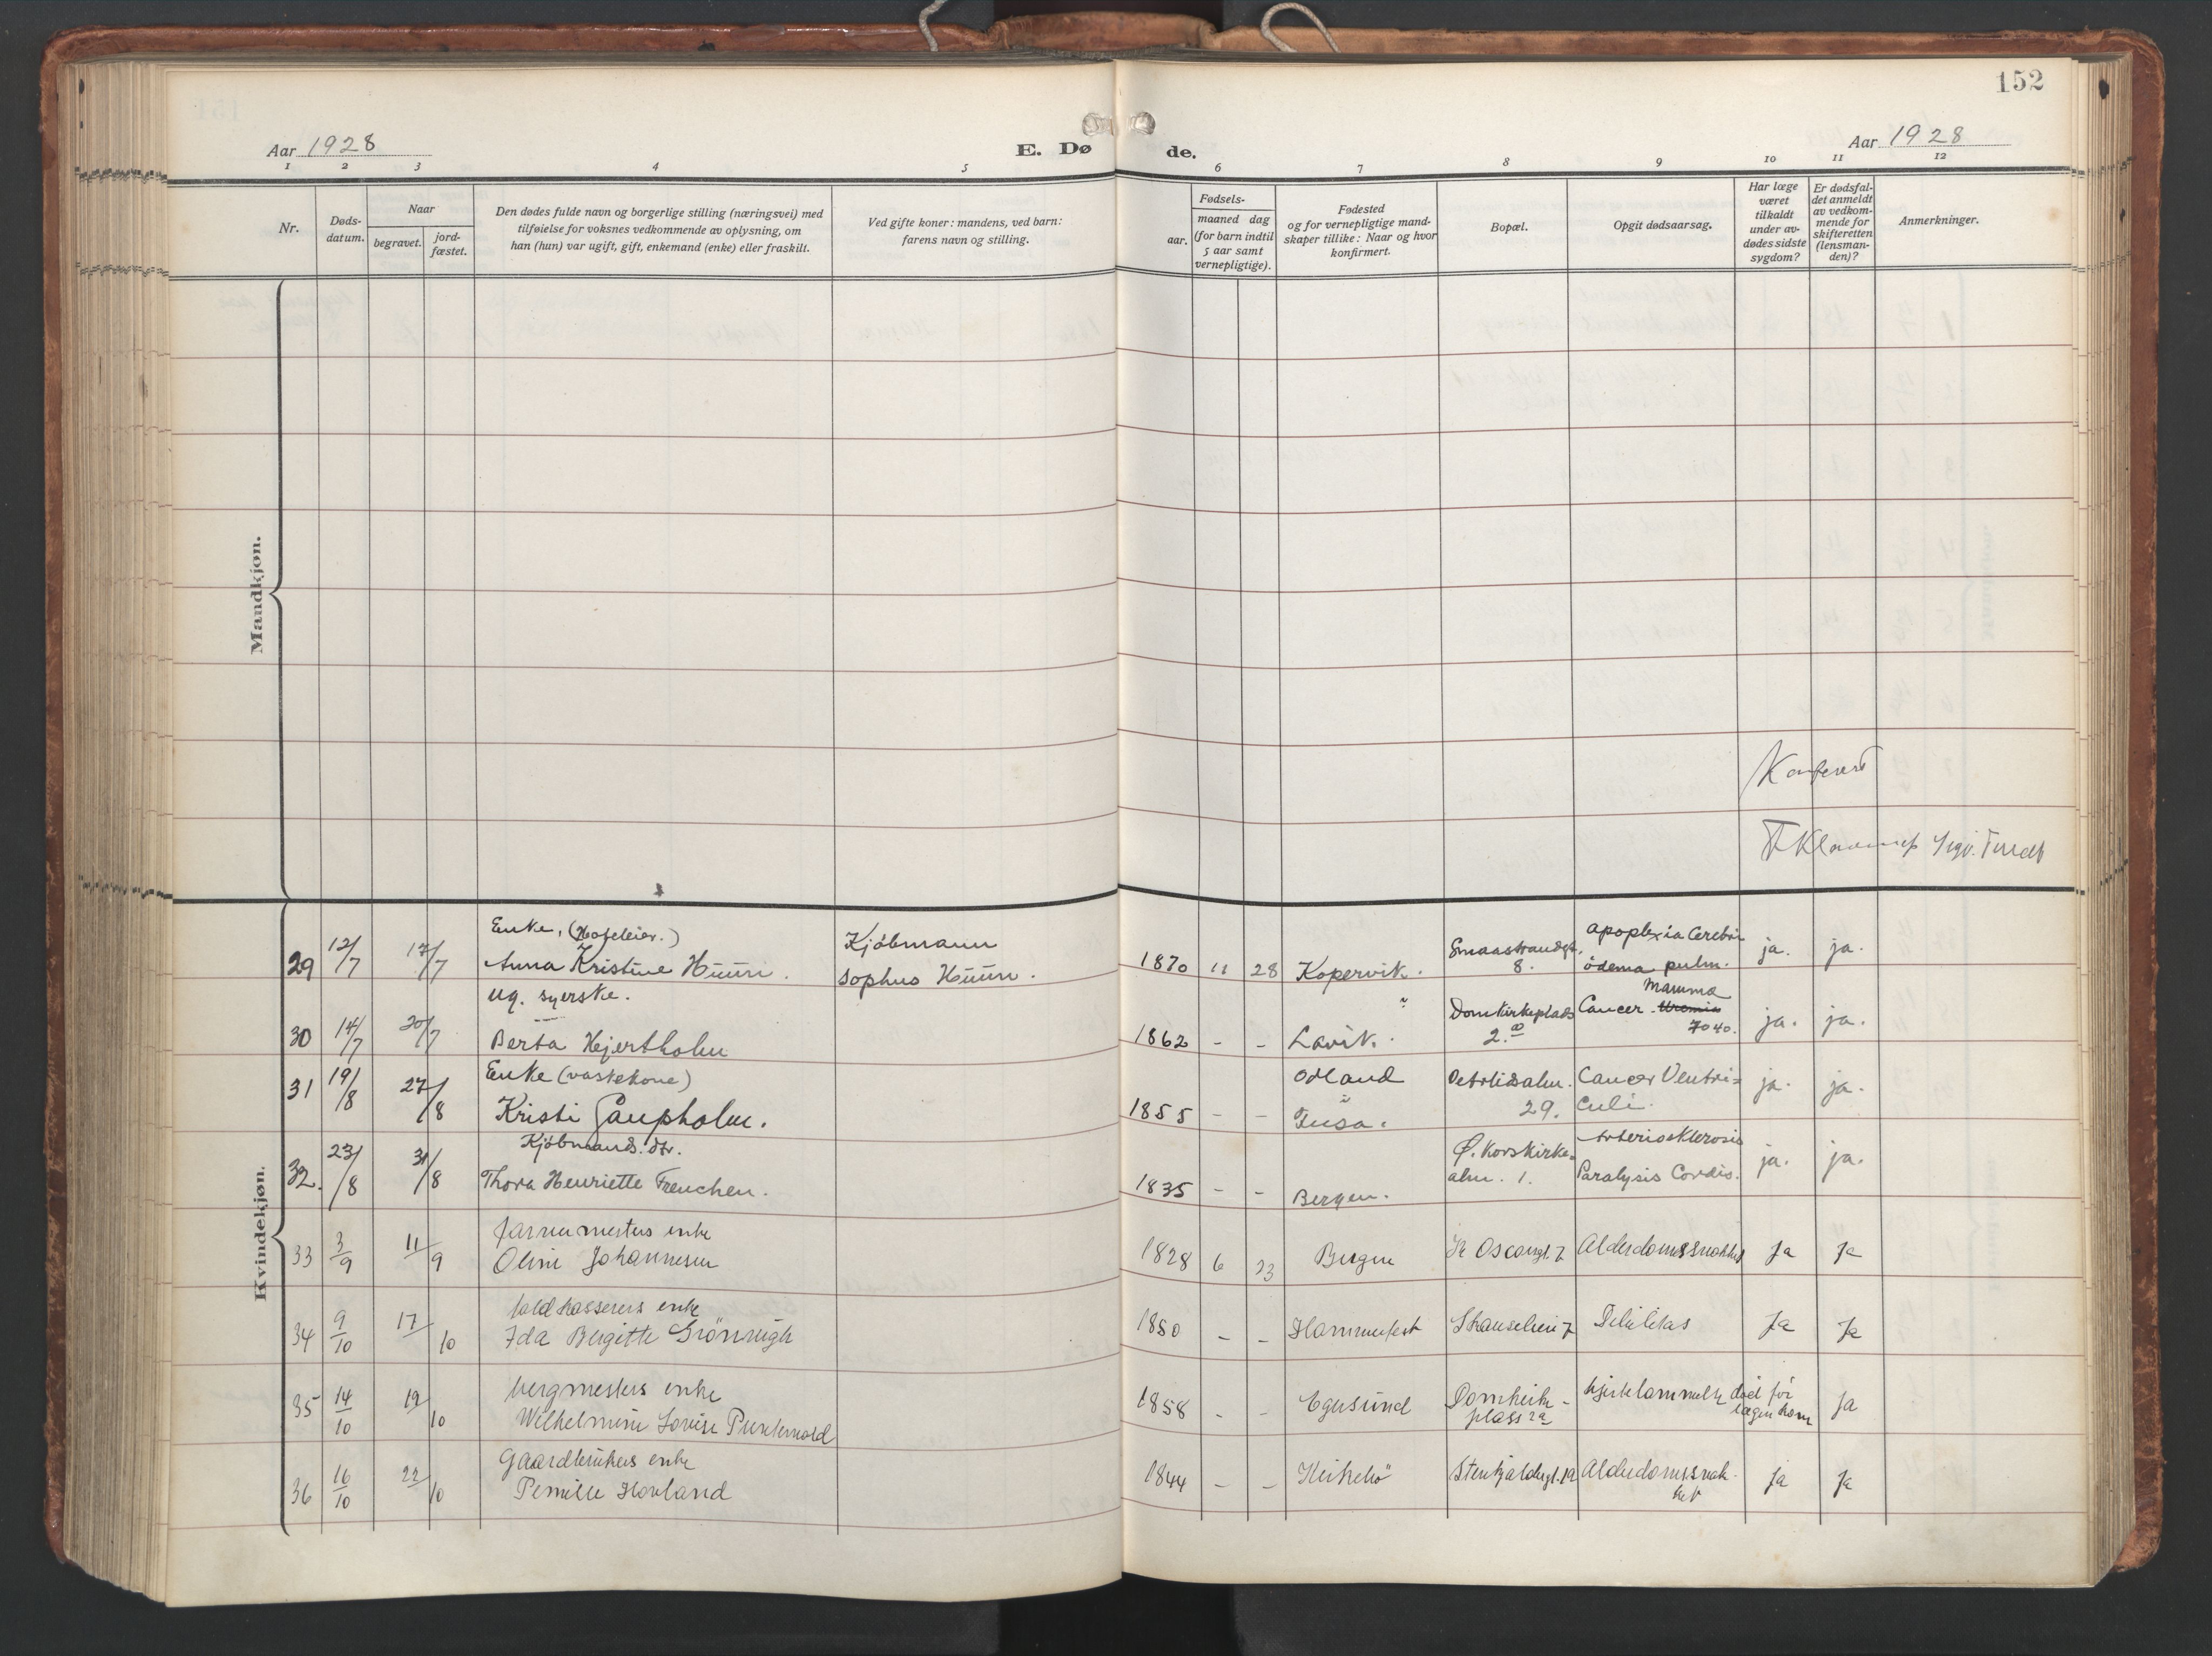 152
Aar 1928
E. Dø
de.
Aar 1928
1 2 3 4 5 6 7 8 9 10 11 12
Nr.
Døds-
datum.
Naar
begravet.
jord-
fæstet.
Den dødes fulde navn og borgerlige stilling (næringsvei) med
tilføielse for voksnes vedkommende av oplysning, om
han (hun) var ugift, gift, enkemand (enke) eller fraskilt.
Ved gifte koner: mandens, ved barn:
farens navn og stilling.
Fødsels-
aar.
maaned dag
(for barn indtil
5 aar samt
vernepligtige).
Fødested
og for vernepligtige mand-
skaper tillike: Naar og hvor
konfirmert.
Bopæl.
Opgit dødsaarsag.
Har læge
været
tilkaldt
under av-
dødes sidste
sygdom?
Er dødsfal-
det anmeldt
av vedkom-
mende for
skifteretten
(lensman-
den)?
Anmerkninger.
Mandkjøn.
Konferert
Kvindekjøn.
Enke, (Hoteleier.)
Kjöbmann
Apoplexia Cerebri
29 12/7 17/7 Anna Kristine Hüün. Sophus Hüün. 1870 11 28 Kopervik. Smaastrandgt. 8. ödema pulm. ja. ja.
ug. syerske.
Mamma
30 14/7 20/7 Berta Hjertholm 1862 - - Lavik. Domkirkeplads 2.a Cancer Uremia 7040. ja. ja.
Enke (vaskekone)
Odland
31 19/8 27/8 Kristi Gaupholm. 1855 - - Fusa. 29. Cancer Ventri-
culi. ja. ja.
Kjöbmands. dtr.
Arteriosklerosis
32. 23/8 31/8 Thora Henriette Frenchen. 1835 - - Bergen. Ø. Korskirke-
alm. 1. Paralysis Cordis. ja. ja.
enke
33 3/9 11/9 Oline Johannesen 1828 6 23 Bergen Alderdomssvakhet Ja Ja
toldkasserers enke
34 9/10 17/10 Ida Bergitte Grönvigh 1850 - - Hammerfest Skanselien 7 Debilitas Ja Ja
bergmesters enke
35 14/10 19/10 Wilhelmine Lovise Puntervold 1858 - - Egersund Domkirke-
plass 2a hjertelammelse död för
lægen kom Ja
Gaardbrukers enke
36 16/10 22/10 Pernille Hovland 1844 - - Kirkebö Alderdomssvak-
het Ja Ja